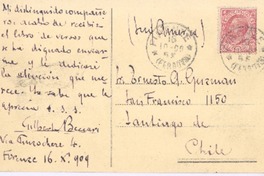 Mi distinguido compañe
ro: acabo de recibir
el libro de versos que
se ha dignado enviar
me y la dedicatoria
la atención que me
rece la sabe que la
aprecia a. s. s.
Gilberto Beccari
Via
Firenze 16. X. 909
(Sud America)
Sr. Ernesto A. Guzman
San Francisco 1150
Santiago de
Chile